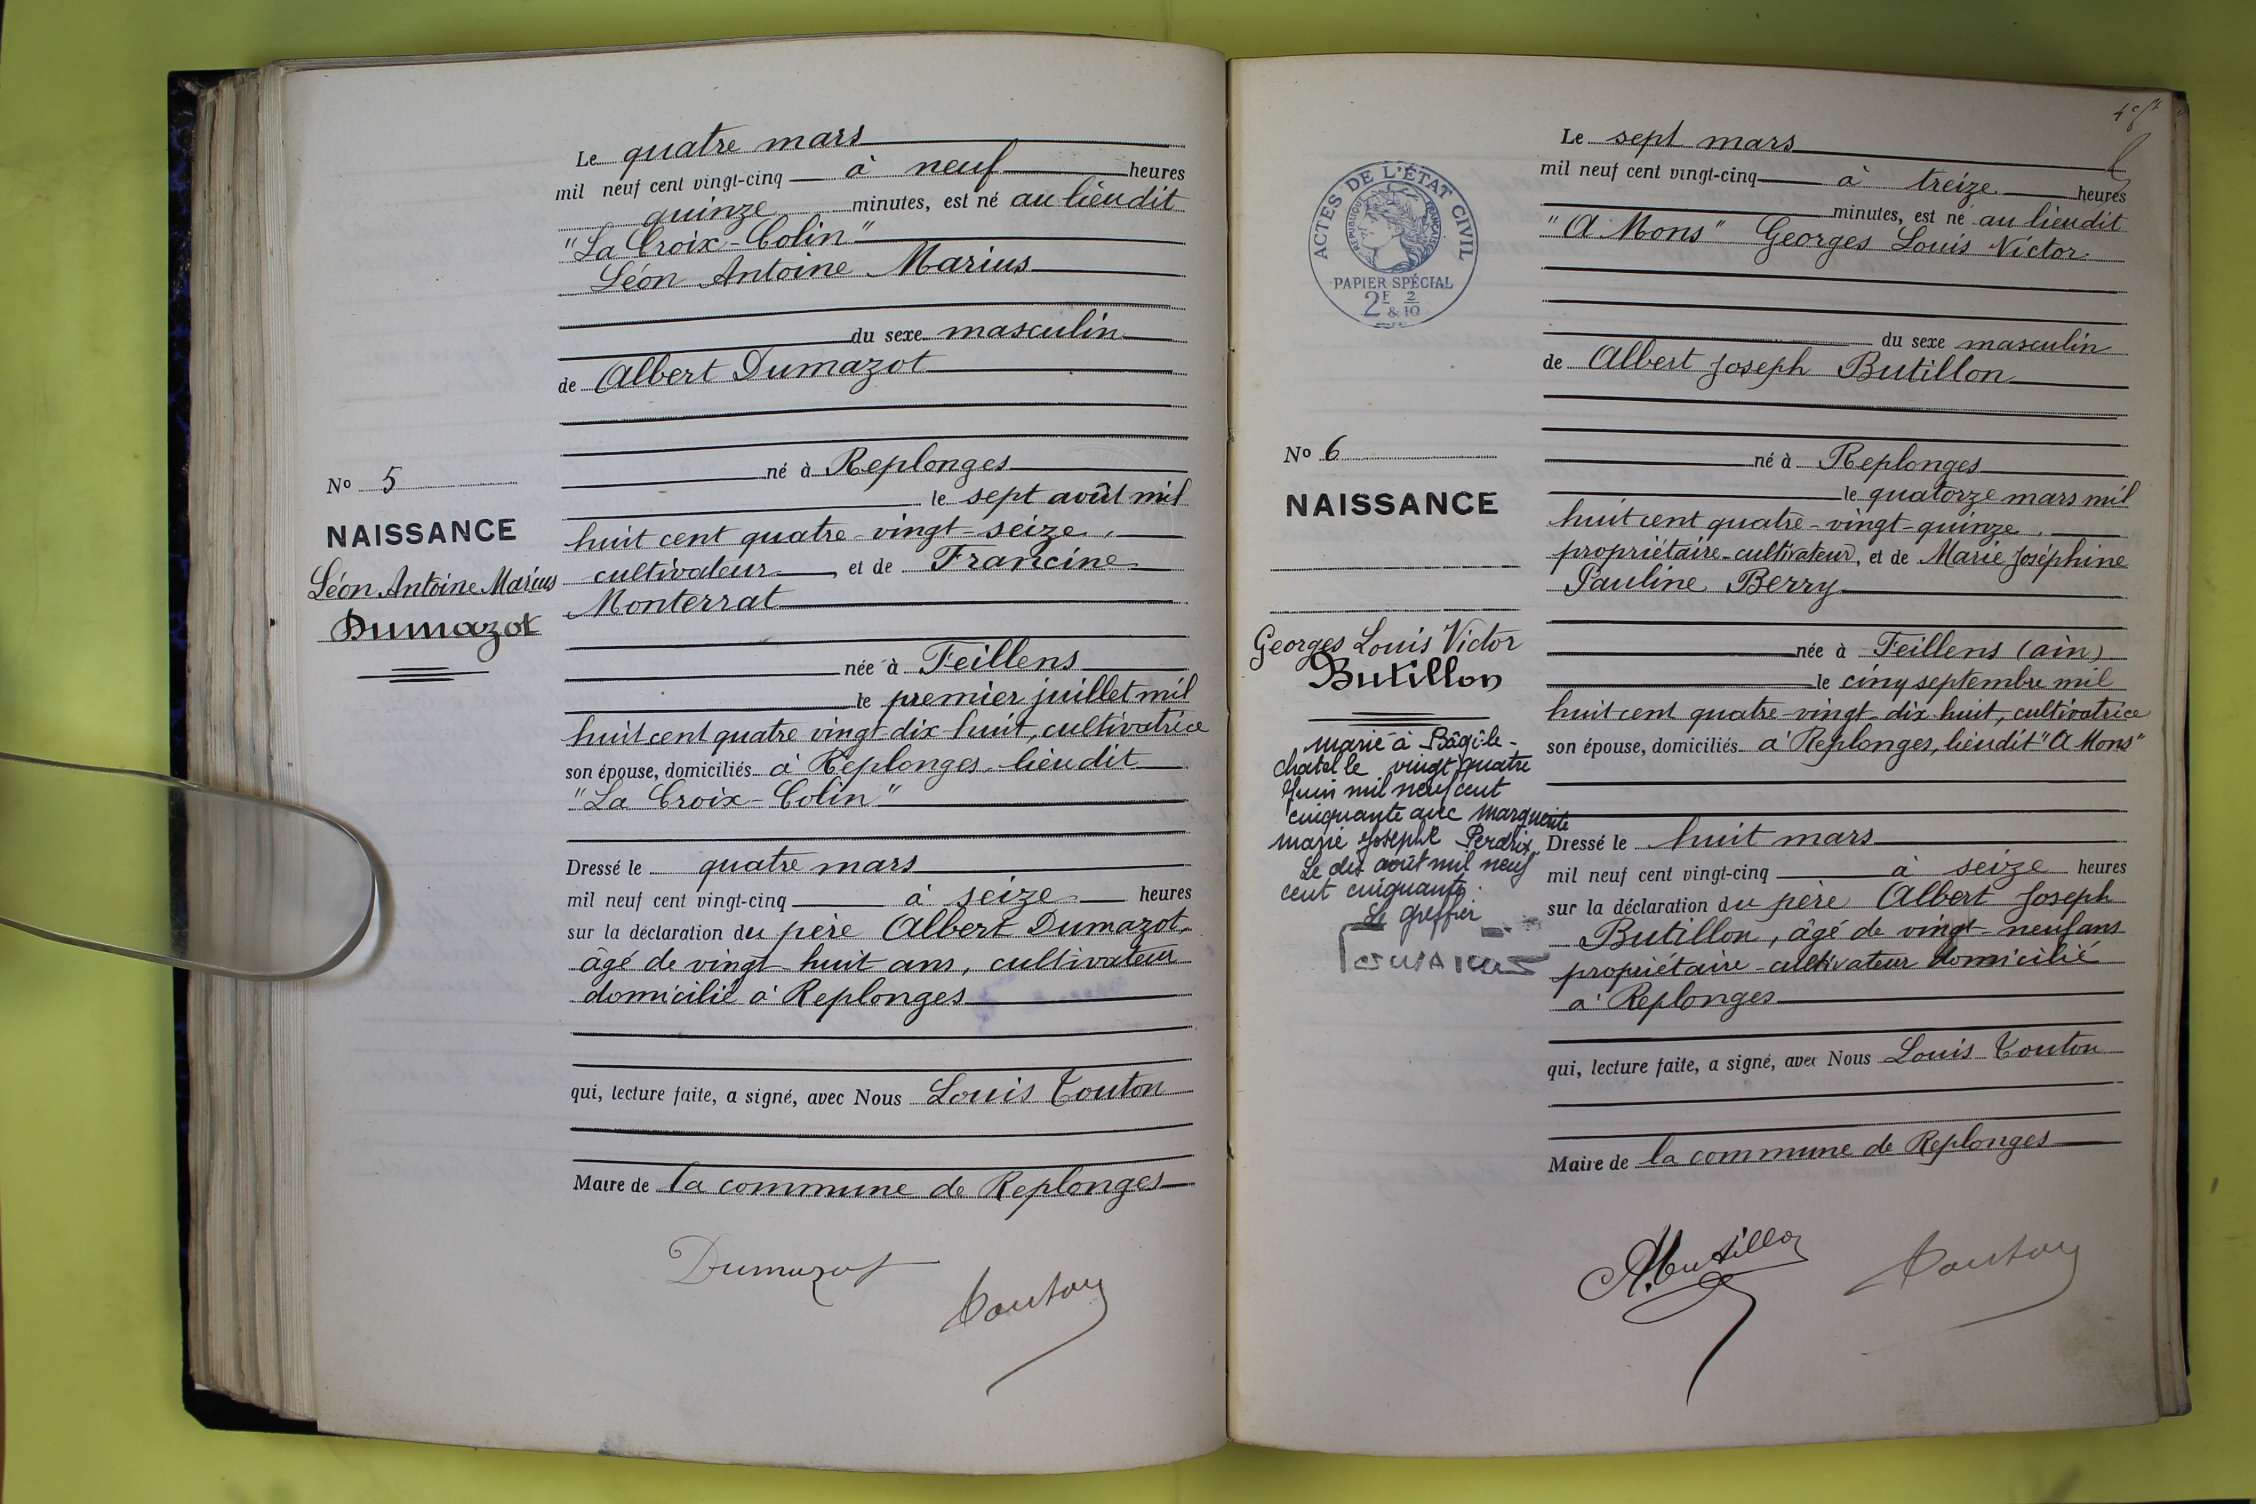 Le quatre mars
mil neuf cent vingt-cinq à neuf heures
quinze minutes, est né au lieudit
"La Croix-Colin"
Léon Antoine Marius
du sexe masculin
de Albert Dumazot
né à Replonges
le sept août mil
huit cent quatre-vingt-seize,
cultivateur, et de Francine
Monterrat
née à Feillens
le premier juillet mil
huit cent quatre vingt-dix-huit, cultivatrice
son épouse, domiciliés à Replonges, lieudit
"La Croix-Colin"
Dressé le quatre mars
mil neuf cent vingt-cinq à seize heures
sur la déclaration du père Albert Dumazot,
âgé de vingt-huit ans, cultivateur
domicilié à Replonges
qui, lecture faite, a signé, avec Nous Louis Touton
Maire de la commune de Replonges
Dumazot
Touton
No 5
NAISSANCE
Léon Antoine Marius
Dumazot
Le sept mars
mil neuf cent vingt-cinq à treize heures
minutes, est né au lieudit
"A Mons" Georges Louis Victor
du sexe masculin
de Albert Joseph Butillon
né à Replonges
le quatorze mars mil
huit cent quatre-vingt-quinze,
propriétaire-cultivateur, et de Marie Joséphine
Pauline Berry
née à Feillens (ain)
le cinq septembre mil
huit cent quatre-vingt-dix-huit, cultivatrice
son épouse, domiciliés à Replonges, lieudit "A Mons"
Dressé le huit mars
mil neuf cent vingt-cinq à seize heures
sur la déclaration du père Albert Joseph
Butillon, âgé de vingt-neuf ans
propriétaire-cultivateur domicilié
à Replonges
qui, lecture faite, a signé, avec Nous Louis Touton
Maire de la commune de Replonges
A. Butillon
Touton
ACTES DE L'ÉTAT CIVIL
RÉPUBLIQUE FRANÇAISE
PAPIER SPÉCIAL
2F & 2/10
No 6
NAISSANCE
Georges Louis Victor
Butillon
marié à Bâgé-le-
chatel le vingt quatre
Juin mil neuf cent
cinquante avec Marguerite
marie Josephe Perdrix
Le dix août mil neuf
cent cinquante.
Le greffier